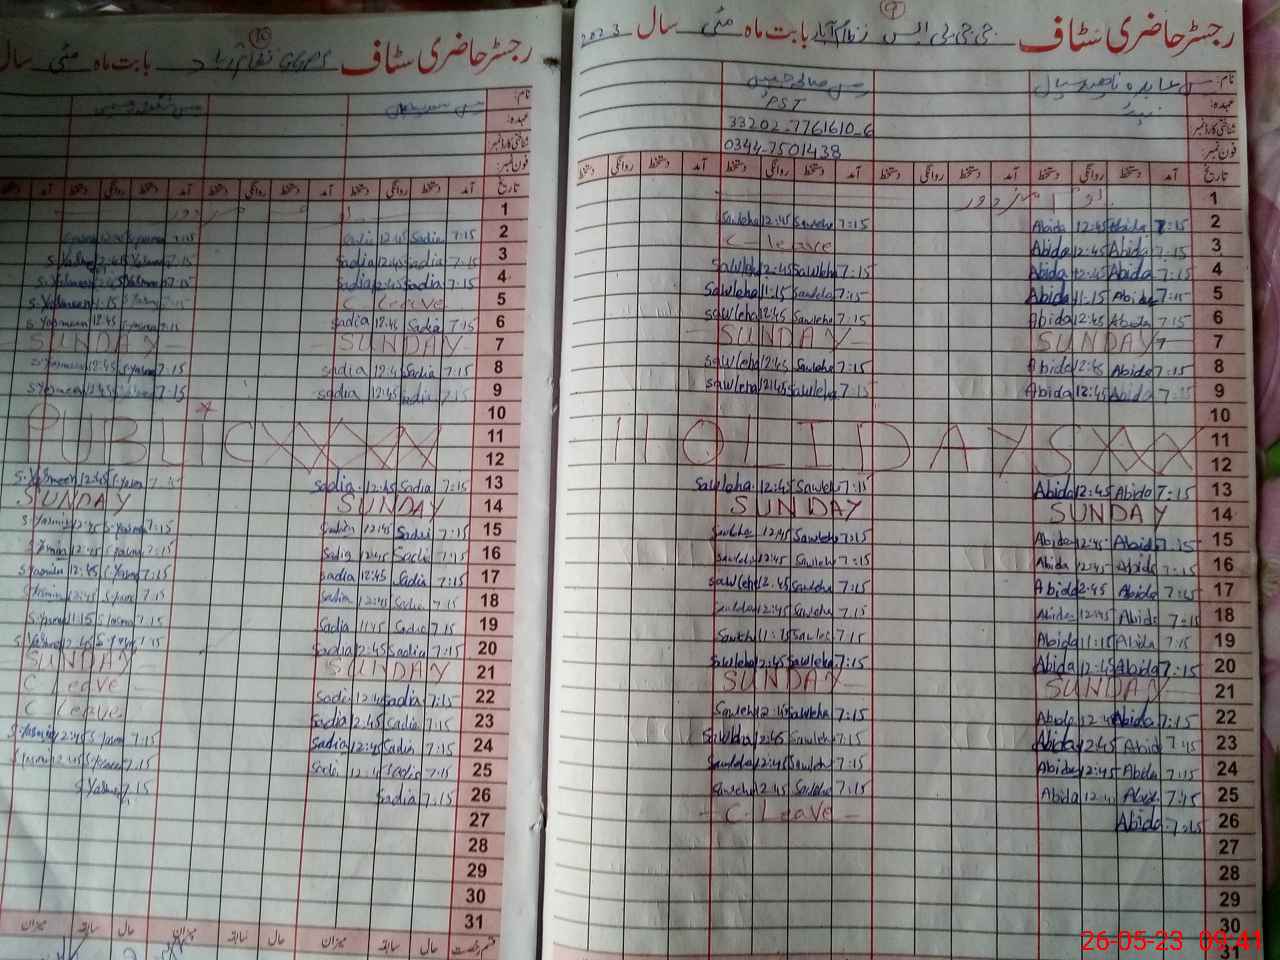 رجسٹر حاضری سٹاف جی جی پی ایس نظام آباد بابت ماہ مئی سال 2023
9
نام:
عہدہ:
PST
شناختی کارڈ نمبر:
33202-7761610-6
فون نمبر:
0344-7501438
تاریخ آمد دستخط روانگی دستخط آمد دستخط روانگی دستخط آمد دستخط روانگی دستخط آمد دستخط
1
2 7:15 Abida 12:45 Abida 7:15 Sawleha 12:45 Sawleha
3 7:15 Abida 12:45 Abida C - leave
4 7:15 Abida 12:45 Abida 7:15 Sawleha 12:45 Sawleha
5 7:15 Abida 11:15 Abida 7:15 Sawleha 11:15 Sawleha
6 7:15 Abida 12:45 Abida 7:15 Sawleha 12:45 Sawleha
7 SUNDAY SUNDAY
8 7:15 Abida 12:45 Abida 7:15 Sawleha 12:45 Sawleha
9 7:15 Abida 12:45 Abida 7:15 Sawleha 12:45 Sawleha
10
11 HOLIDAYSXXX
12
13 7:15 Abida 12:45 Abida 7:15 Sawleha 12:45 Sawleha
14 SUNDAY SUNDAY
15 7:15 Abida 12:45 Abida 7:15 Sawleha 12:45 Sawleha
16 7:15 Abida 12:45 Abida 7:15 Sawleha 12:45 Sawleha
17 7:15 Abida 12:45 Abida 7:15 Sawleha 12:45 Sawleha
18 7:15 Abida 12:45 Abida 7:15 Sawleha 12:45 Sawleha
19 7:15 Abida 11:15 Abida 7:15 Sawleha 11:15 Sawleha
20 7:15 Abida 12:45 Abida 7:15 Sawleha 12:45 Sawleha
21 SUNDAY SUNDAY
22 7:15 Abida 12:45 Abida 7:15 Sawleha 12:45 Sawleha
23 7:15 Abida 12:45 Abida 7:15 Sawleha 12:45 Sawleha
24 7:15 Abida 12:45 Abida 7:15 Sawleha 12:45 Sawleha
25 7:15 Abida 12:4 Abida 7:15 Sawleha 12:45 Sawleha
26 7:15 Abida - C - Leave -
27
28
29
30
31
رجسٹر حاضری سٹاف GGPS نظام آباد بابت ماہ مئی سال
10
نام:
عہدہ:
شناختی کارڈ نمبر:
فون نمبر:
تاریخ آمد دستخط روانگی دستخط آمد دستخط روانگی دستخط آمد دستخط روانگی دستخط آمد
1
2 7:15 Sadia 12:45 Sadia 7:15
3 7:15 Sadia 12:45 Sadia 7:15 Yasmeen 12:45 S.Yasmeen
4 7:15 Sadia 12:45 Sadia 7:15 Yasmeen 12:45 S.Yasmeen
5 C leave 11:15 S.Yasmeen
6 7:15 Sadia 12:45 Sadia 7:15 12:45 S.Yasmeen
7 SUNDAY - SUNDAY -
8 7:15 Sadia 12:4 Sadia 7:15 S.Yasmeen 12:45 S.Yasmeen
9 Sadia 12:45 Sadia 7:15 12:45 S.Yasmeen
10
11 PUBLICXXXX
12
13 7:15 Sadia 12:45 Sadia 12:45 S.Yasmeen
14 SUNDAY SUNDAY
15 7:15 Sadia 12:45 Sadia 7:15 S.Yasmin 12:45 S.Yasmin
16 7:15 Sadia 12:45 Sadia 7:15 12:45
17 7:15 Sadia 12:45 Sadia 7:15 12:45 S.Yasmin
18 7:15 Sadia 12:45 Sadia 7:15 12:45
19 7:15 Sadia 11:15 Sadia 7:15 11:15
20 7:15 Sadia 12:45 Sadia 7:15 12:45
21 SUNDAY - SUNDAY -
22 7:15 Sadia 12:45 Sadia C Leave
23 7:15 Sadia 12:45 Sadia C Leave
24 7:15 Sadia 12:45 Sadia 7:15 12:45 S.Yasmin
25 7:15 Sadia 12:4 Sadia 7:15 12:45
26 7:15 Sadia 7:15
27
28
29
30
31
حال سابقہ میزان حال سابقہ میزان حال سابقہ میزان
26-05-23 09:41